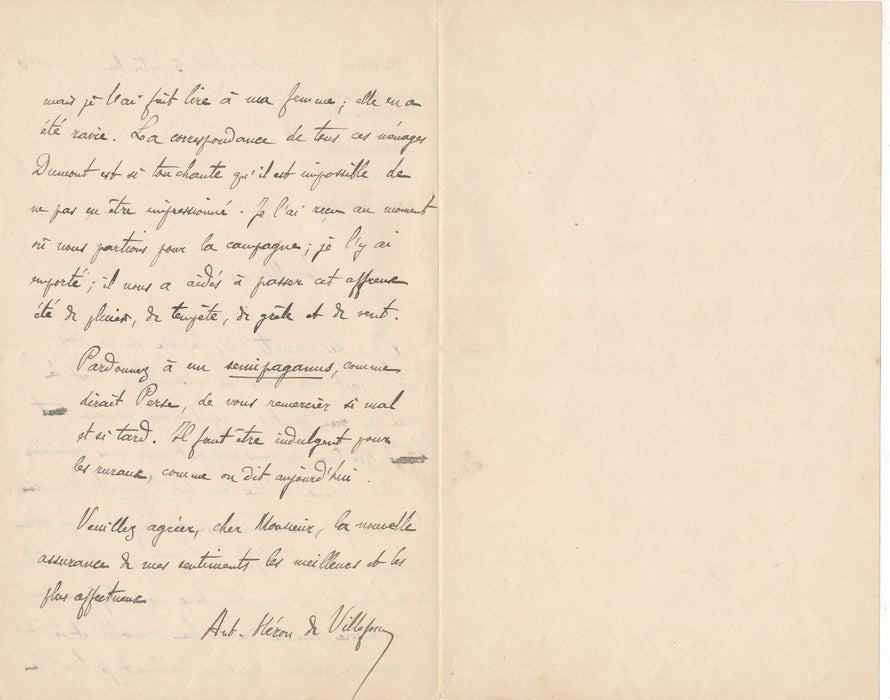 mais je l'ai fait lire à ma femme ; elle en a
été ravie. La correspondance de tous ces ménages
Dumont est si touchante qu'il est impossible de
ne pas en être impressionné. Je l'ai reçu au moment
où nous partions pour la campagne ; je l'y ai
emporté ; il nous a aidés à passer cet affreux
été de pluies, de tempête, de grêle et de vent.
Pardonnez à un semipaganus, comme
dirait Perse, de vous remercier si mal
et si tard. Il faut être indulgent pour
les ruraux, comme on dit aujourd'hui.
Veuillez agréer, cher Monsieur, la nouvelle
assurance de mes sentiments les meilleurs et les
plus affectueux
Ant. Héron de Villefosse